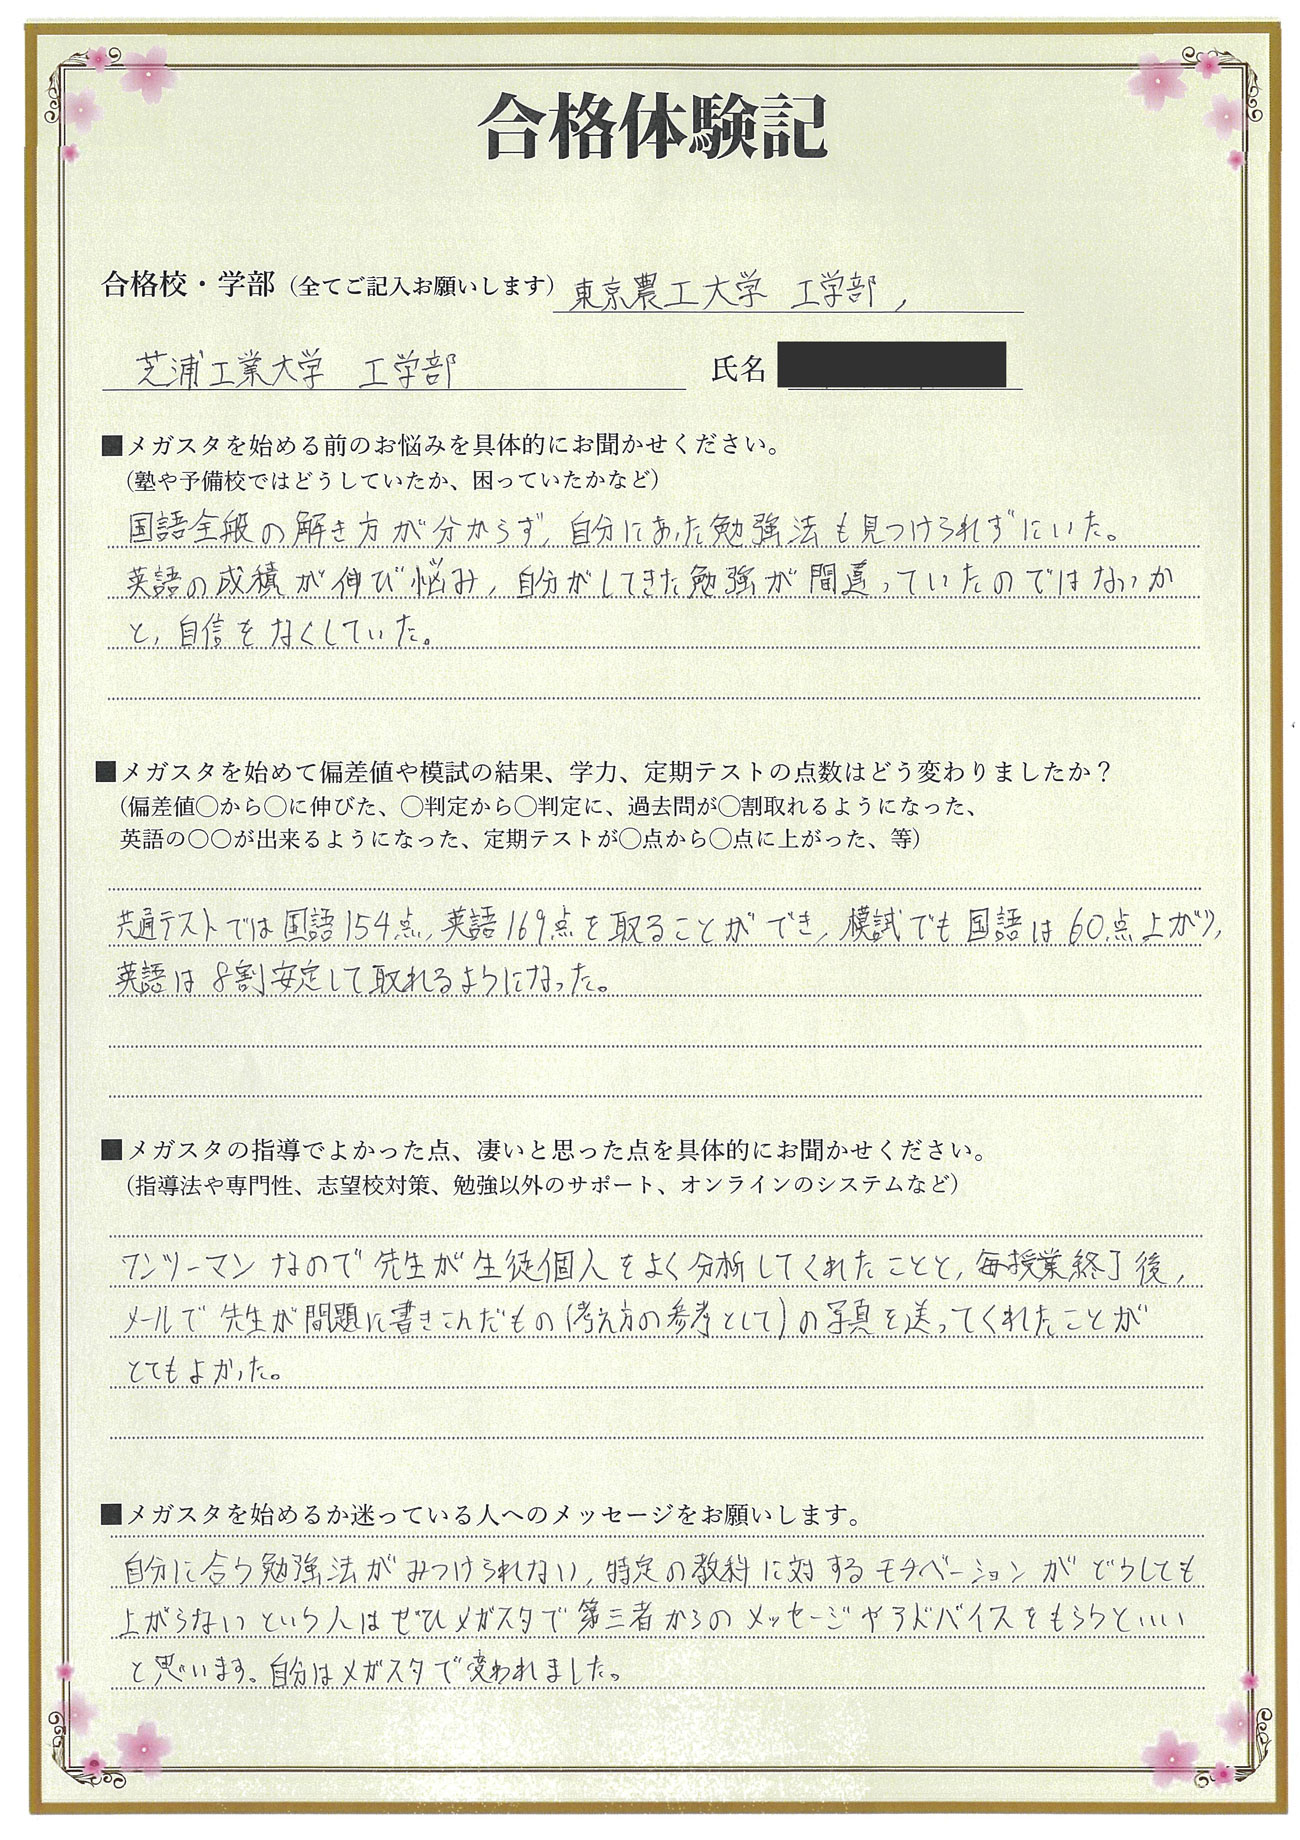 合格体験記
合格校・学部（全てご記入お願いします） 東京農工大学 工学部,
芝浦工業大学 工学部 氏名
■メガスタを始める前のお悩みを具体的にお聞かせください。
（塾や予備校ではどうしていたか、困っていたかなど）
国語全般の解き方が分からず, 自分にあった勉強法も見つけられずにいた。
英語の成積が伸び悩み, 自分がしてきた勉強が間違っていたのではないか
と, 自信をなくしていた。
■メガスタを始めて偏差値や模試の結果、学力、定期テストの点数はどう変わりましたか？
（偏差値〇から〇に伸びた、〇判定から〇判定に、過去問が〇割取れるようになった、
英語の〇〇が出来るようになった、定期テストが〇点から〇点に上がった、等）
共通テストでは国語154点, 英語169点を取ることができ, 模試でも国語は60点上がり,
英語は8割安定して取れるようになった。
■メガスタの指導でよかった点、凄いと思った点を具体的にお聞かせください。
（指導法や専門性、志望校対策、勉強以外のサポート、オンラインのシステムなど）
ワンツーマンなので先生が生徒個人をよく分析してくれたことと, 毎授業終了後,
メールで先生が問題に書きこんだもの(考え方の参考として)の写真を送ってくれたことが
とてもよかった。
■メガスタを始めるか迷っている人へのメッセージをお願いします。
自分に合う勉強法がみつけられない, 特定の教科に対するモチベーションがどうしても
上がらないという人はぜひメガスタで第三者からのメッセージやアドバイスをもらうといい
と思います。自分はメガスタで変われました。